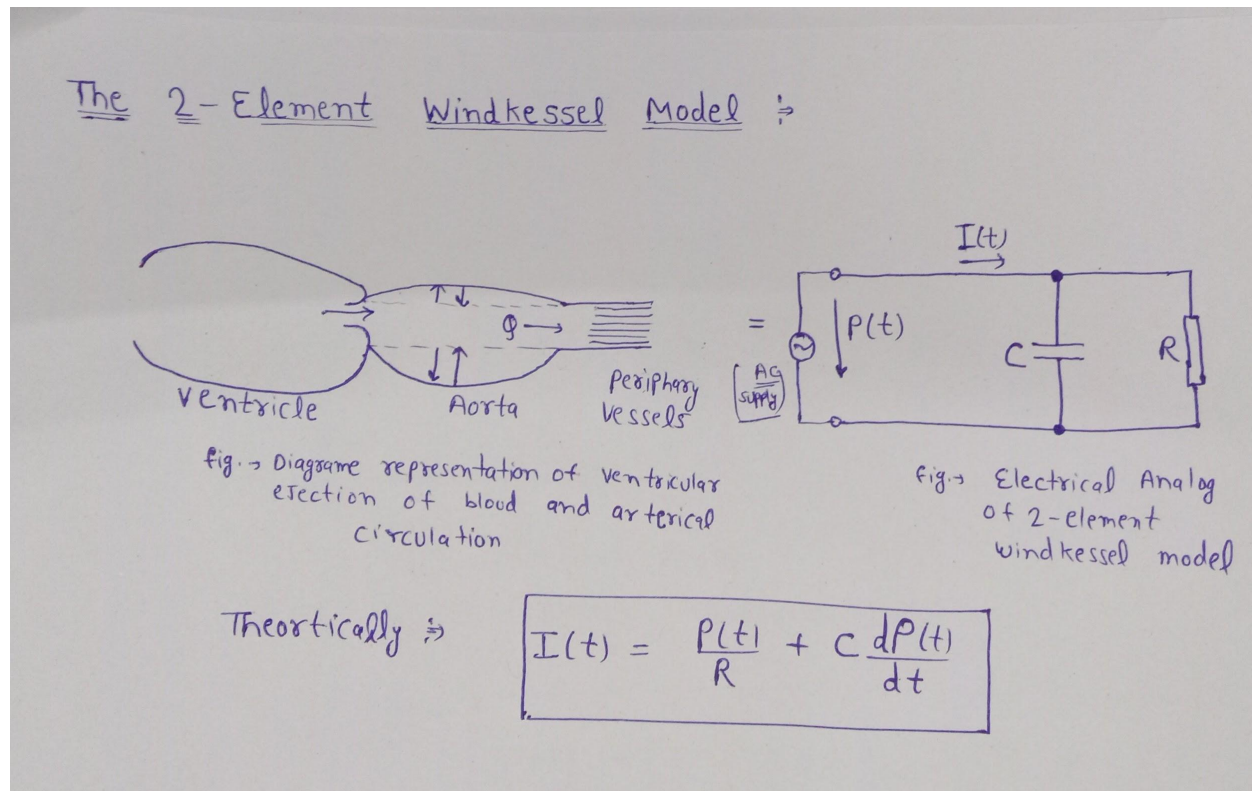 The 2-Element Windkessel Model :-
I(t)
P(t)
Q
=
C
R
AC
supply
Ventricle
Aorta
Periphary
vessels
fig. → Diagrame representation of ventricular
ejection of blood and arterical
circulation
fig. → Electrical Analog
of 2-element
windkessel model
Theortically :-
I(t) = P(t)/R + C dP(t)/dt